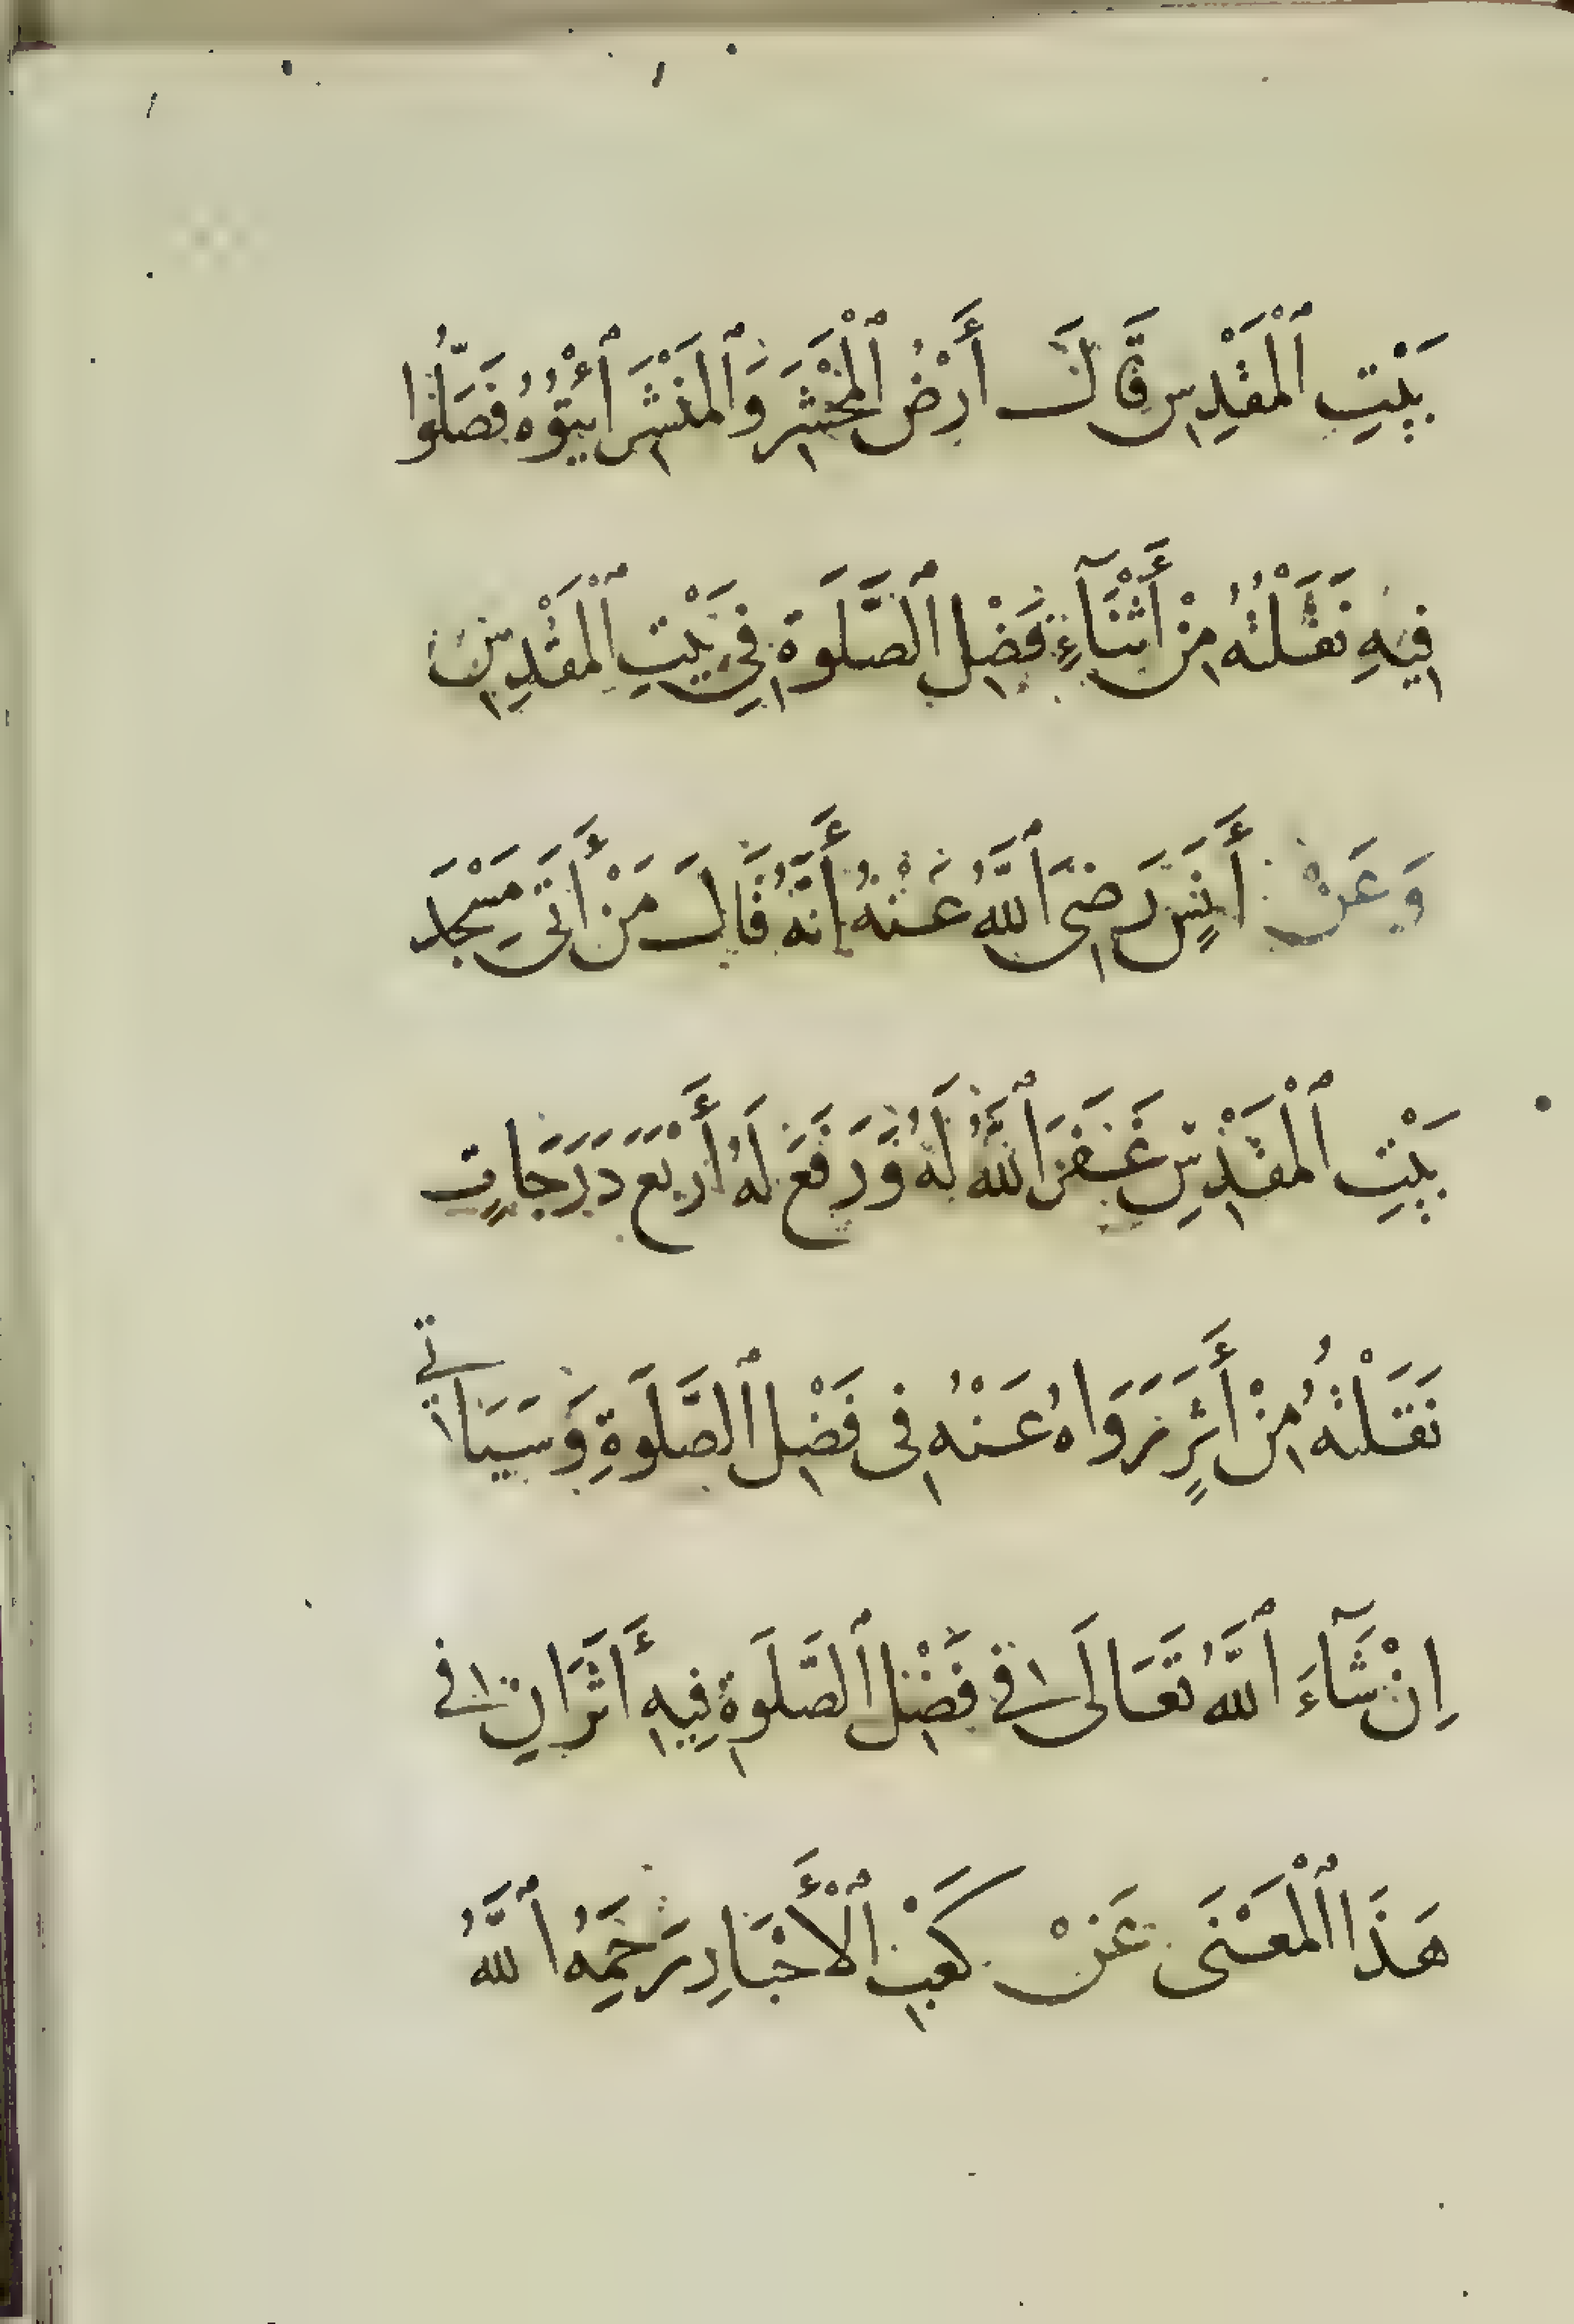 بَيْتِ ٱلْمَقْدِسِ قَالَ أَرْضُ ٱلْمَحْشَرِ وَٱلْمَنْشَرِ ٱئْتُوهُ فَصَلُّوا
فِيهِ نَقَلْتُهُ مِنْ أَثْنَآءِ فَضْلِ ٱلصَّلَوةِ فِي بَيْتِ ٱلْمَقْدِسِ
وَعَنْ أَنَسٍ رَضِىَ ٱللَّهُ عَنْهُ أَنَّهُ قَالَ مَنْ أَتَى مَسْجِدَ
بَيْتِ ٱلْمَقْدِسِ غَفَرَ ٱللَّهُ لَهُ وَرَفَعَ لَهُ أَرْبَعَ دَرَجَاتٍ
نَقَلْتُهُ مِنْ أَثَرٍ رَوَاهُ عَنْهُ فِى فَضْلِ ٱلصَّلَوةِ وَسَيَاتِي
اِنْ شَآءَ ٱللَّهُ تَعَالَى فِي فَضْلِ ٱلصَّلَوةِ فِيهِ أَثَرَانِ فِي
هَذَا ٱلْمَعْنَى عَنْ كَعْبِ ٱلْأَحْبَارِ رَحِمَهُ ٱللَّهُ